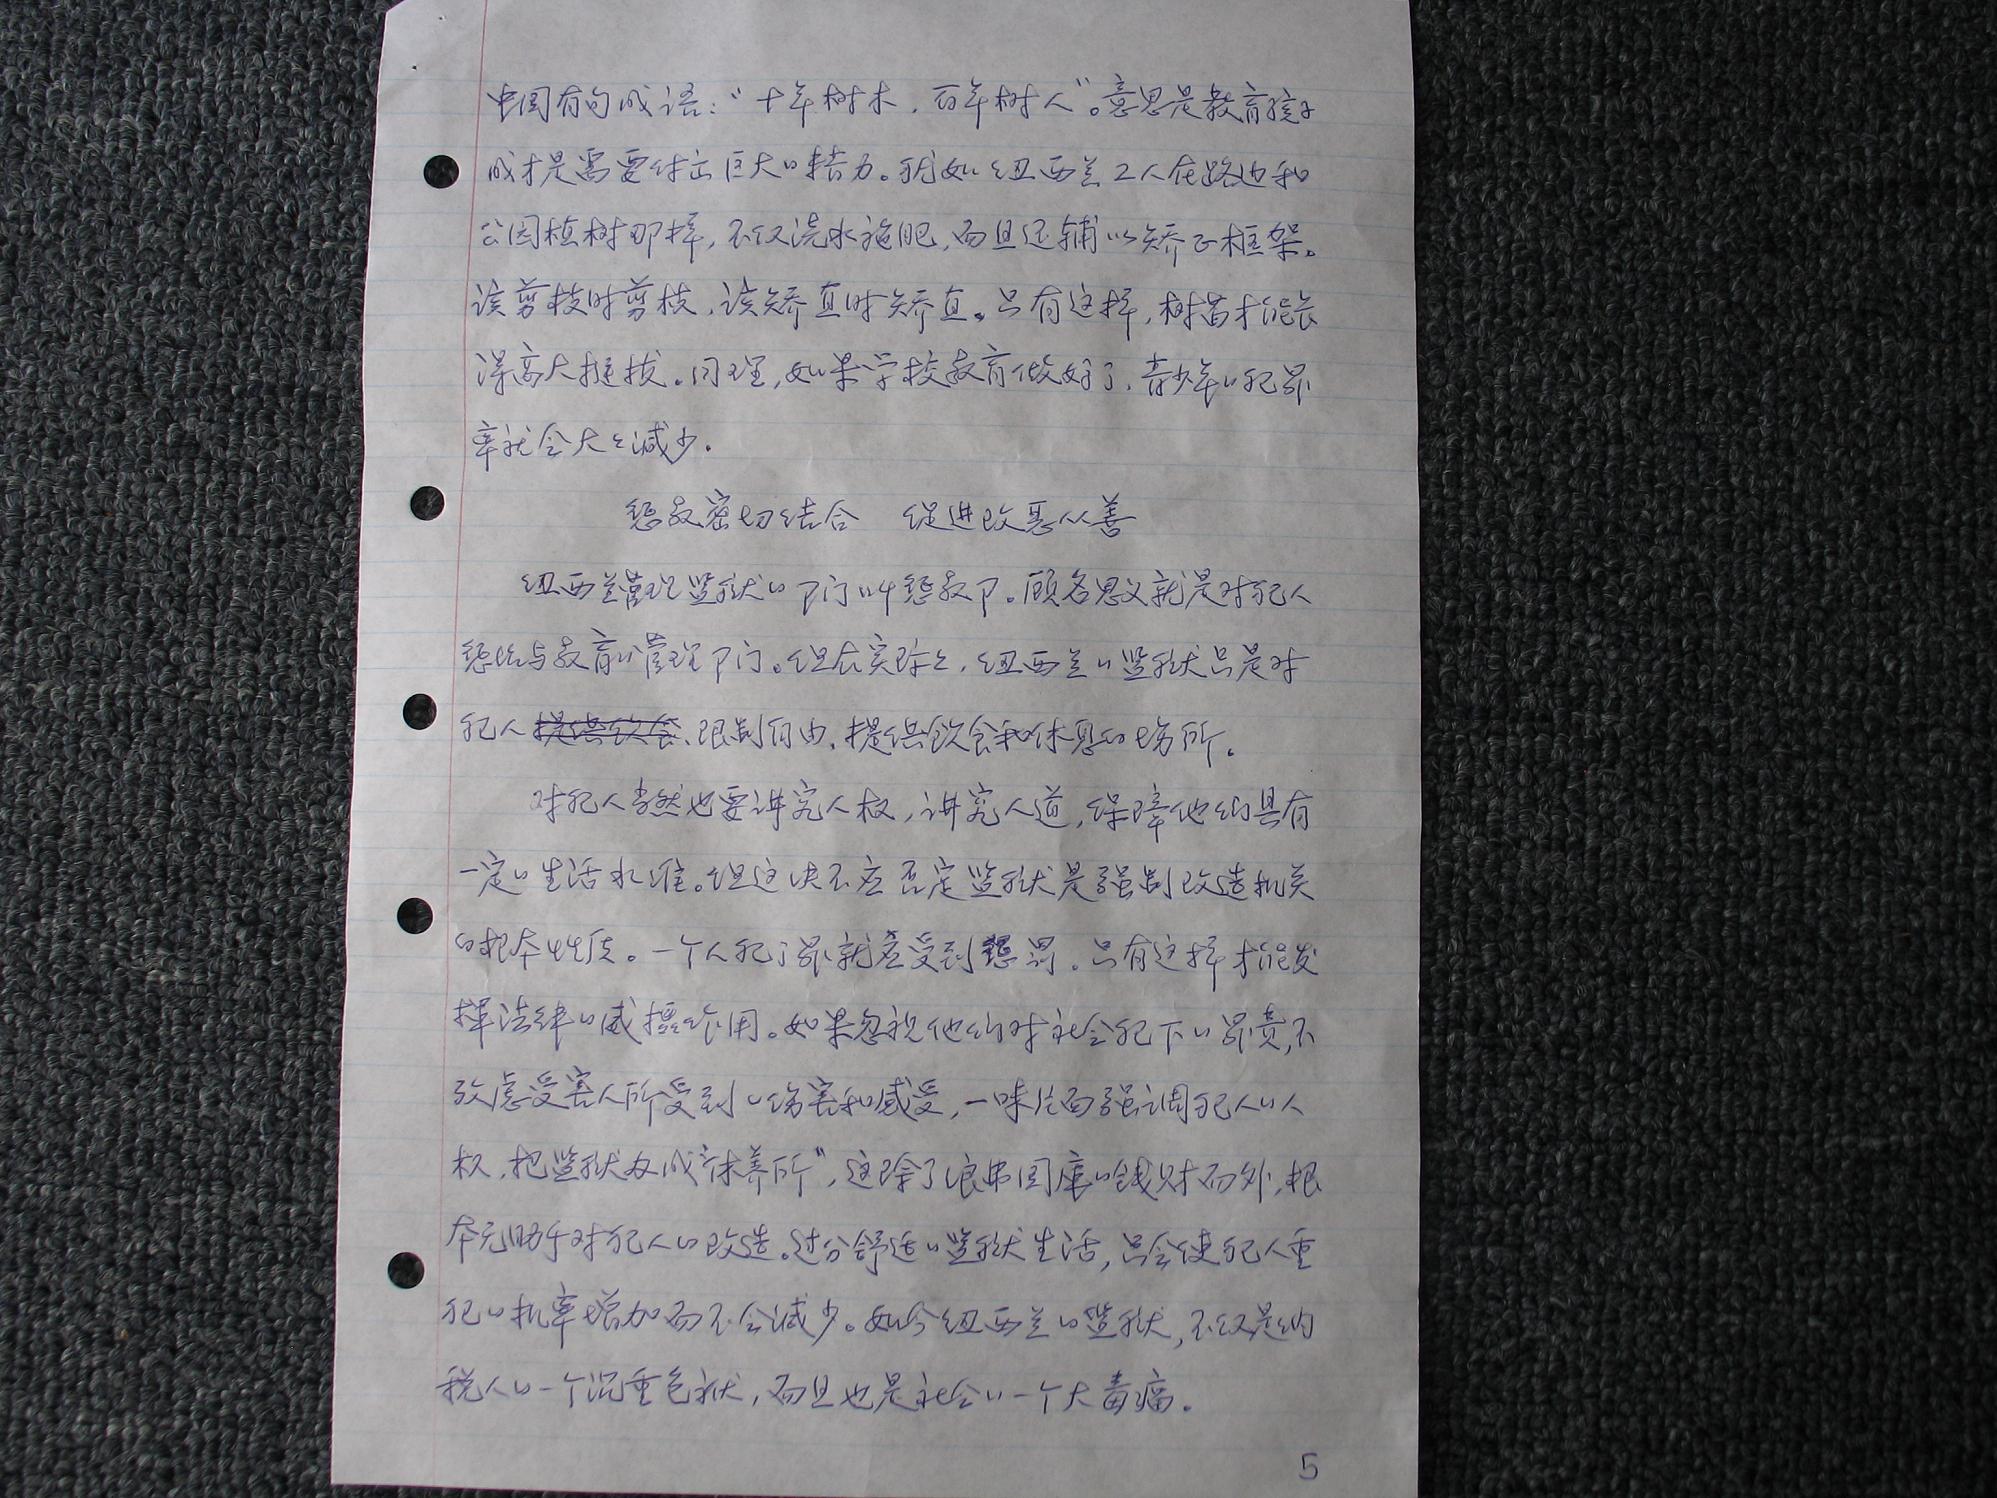 中国有句成语：“十年树木，百年树人”。意思是教育孩子
成才是需要付出巨大的努力。犹如纽西兰工人在路边和
公园植树那样，不仅浇水施肥，而且还辅以矫正框架。
该剪枝时剪枝，该矫直时矫直。只有这样，树苗才能长
得高大挺拔。同理，如果学校教育做好了，青少年的犯罪
率就会大大减少。
惩教密切结合 促进改恶从善
纽西兰管理监狱的部门叫惩教部。顾名思义就是对犯人
惩治与教育的管理部门。但在实际上，纽西兰的监狱只是对
犯人限制自由、提供饮食和休息的场所。
对犯人当然也要讲究人权，讲究人道，保障他们具有
一定的生活水准。但这决不应否定监狱是强制改造机关
的根本性质。一个人犯了罪就应受到惩罚。只有这样才能发
挥法律的威慑作用。如果忽视他们对社会犯下的罪责，不
考虑受害人所受到的伤害和感受，一味片面强调犯人的人
权，把监狱办成“休养所”，这除了浪费国库的钱财而外，根
本无助于对犯人的改造。过分舒适的监狱生活，只会使犯人重
犯的机率增加而不会减少。如今纽西兰的监狱，不仅是纳
税人的一个沉重包袱，而且也是社会的一个大毒瘤。
5